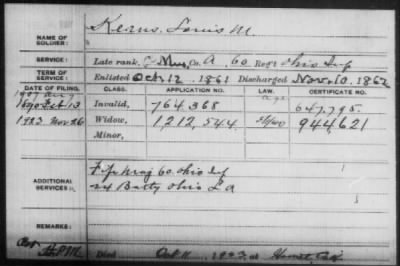 NAME OF SOLDIER: Kerns, Louis M.
SERVICE: Late rank, Mus, Co. A, 60 Reg't Ohio Inf
TERM OF SERVICE: Enlisted Oct 12, 1861 Discharged Nov. 10, 1862
DATE OF FILING. CLASS. APPLICATION NO. LAW. CERTIFICATE NO.
1890 Invalid, 764,368 647,795.
1923 Nov 26 Widow, 1,212,544 944,621
Minor,
ADDITIONAL SERVICES: 60 Ohio Inf
Batty Ohio L A
REMARKS:
Died Oct 11, 1923, at